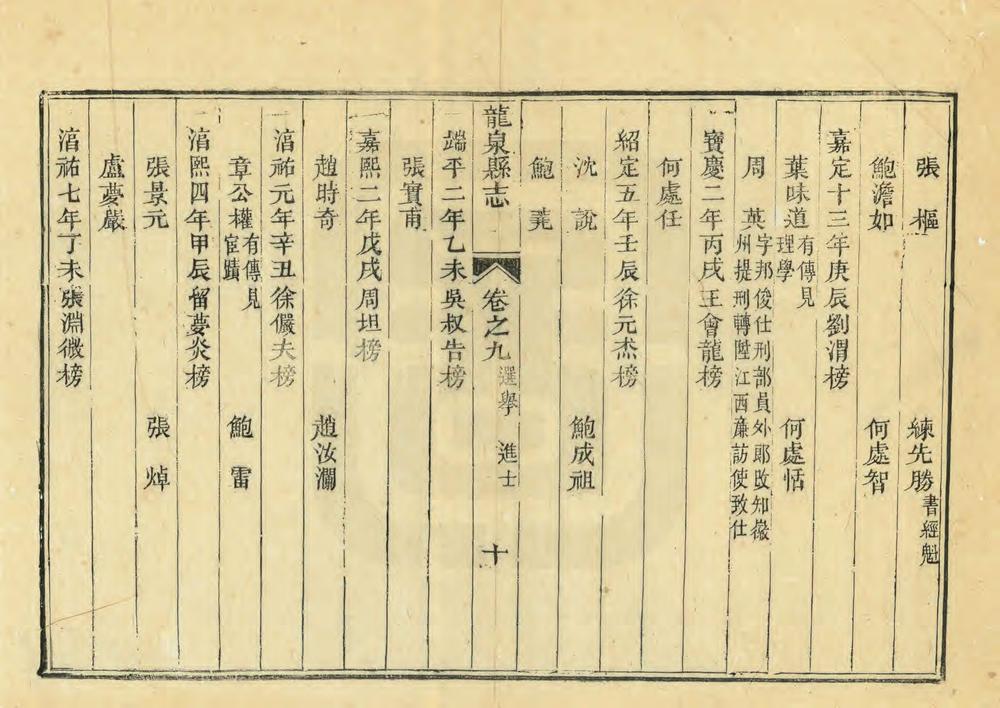 張樞　練先勝書經魁
鮑澹如　何處智
嘉定十三年庚辰劉渭榜
葉味道有傳見理學　何處恬
周英字邦俊仕刑部員外郎改知徽州提刑轉陞江西廉訪使致仕
寶慶二年丙戌王會龍榜
何處任
紹定五年壬辰徐元杰榜
沈說　鮑成祖
鮑
龍泉縣志　卷之九　選舉　進士　十
端平二年乙未吳叔告榜
張實甫
嘉熙二年戊戌周坦榜
趙時奇　趙汝瀾
淯祐元年辛丑徐儼夫榜
章公權有傳見宦蹟　鮑雷
淯熙四年甲辰留夢炎榜
張景元　張焯
盧夢嚴
淯祐七年丁未張淵微榜